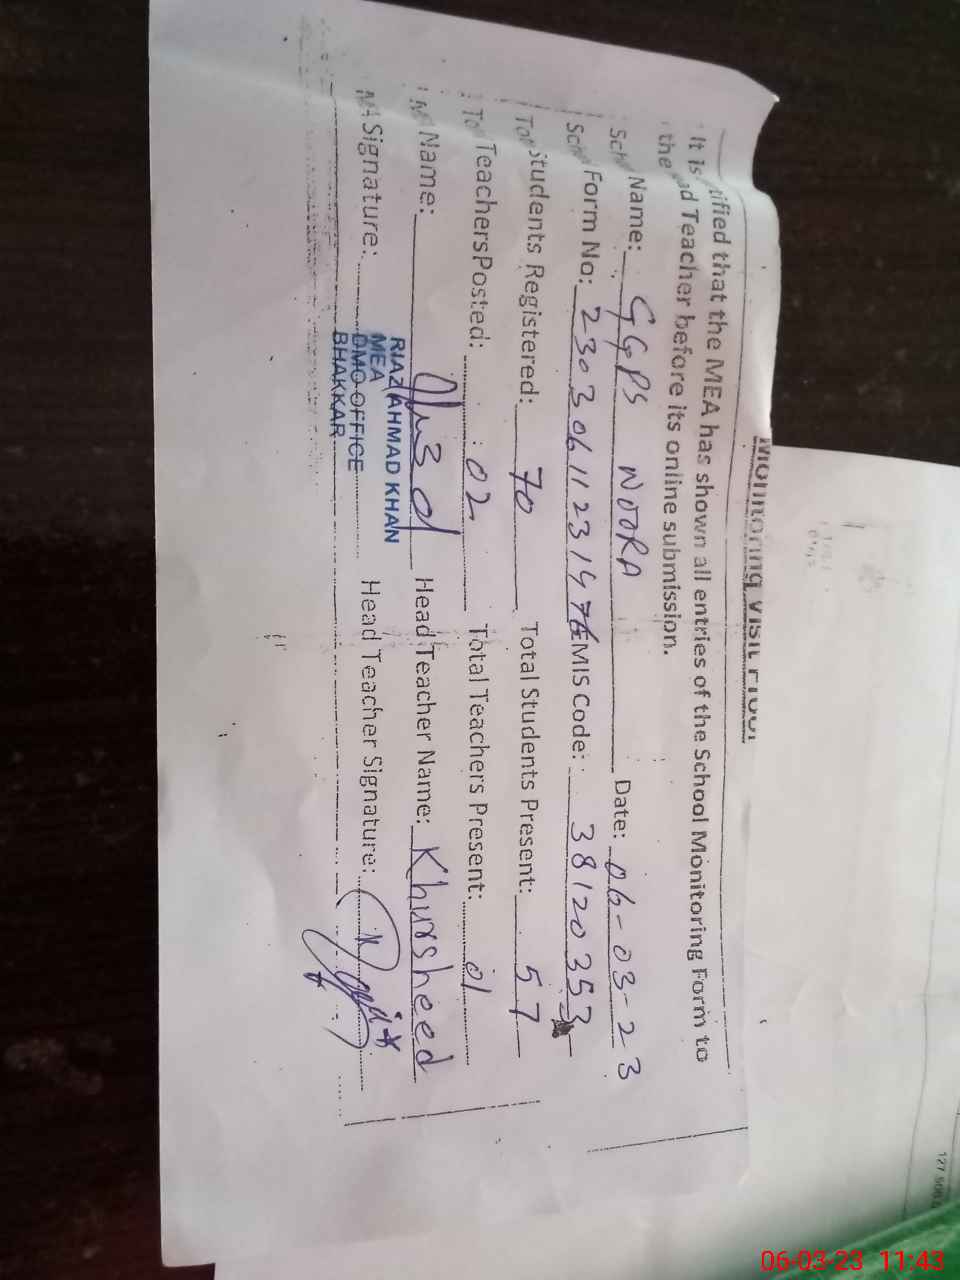 Monitoring Visit Proof
It is tified that the MEA has shown all entries of the School Monitoring Form to
the ad Teacher before its online submission.
Name: GGPS NOORA Date: 06-03-23
Form No: EMIS Code: 38120353
Students Registered: 70 Total Students Present: 57
Teachers Posted: 02 Total Teachers Present: 01
Name: Head Teacher Name: Khursheed
RIAZ AHMAD KHAN
MEA
DMO OFFICE
BHAKKAR
Signature: Head Teacher Signature:
06-03-23 11:43